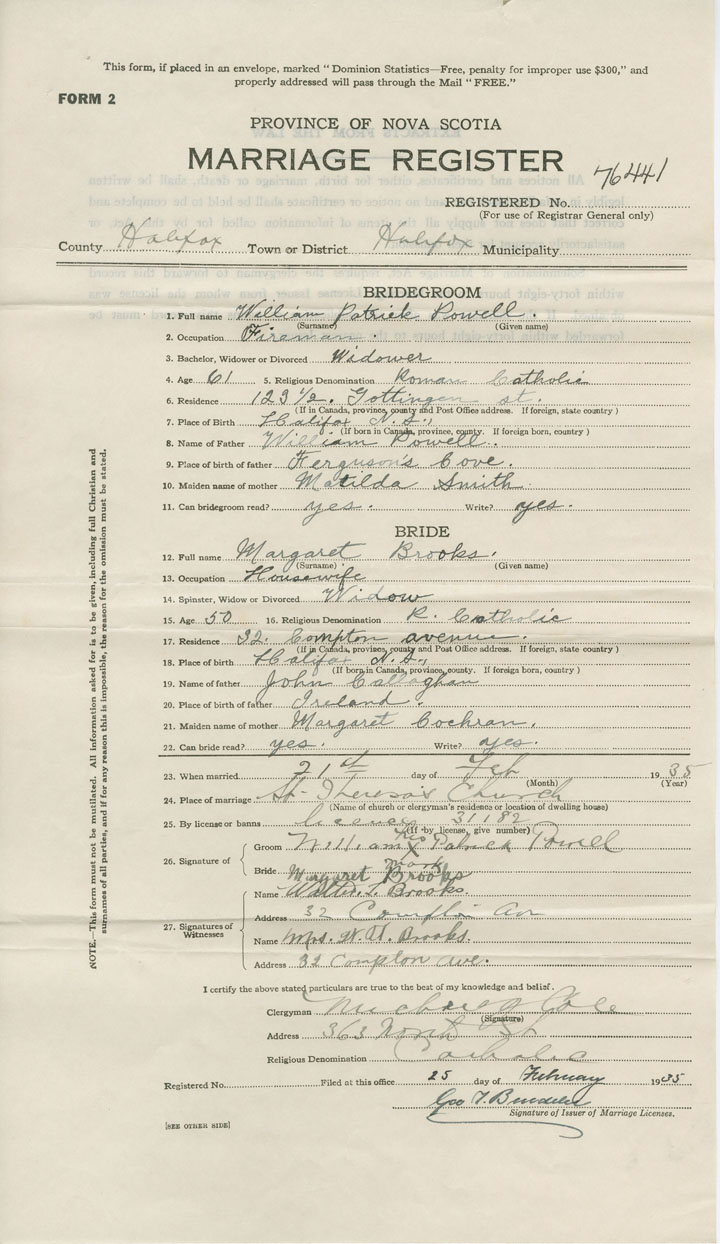 This form, if placed in an envelope, marked "Dominion Statistics—Free, penalty for improper use $300," and
properly addressed will pass through the Mail "FREE."
FORM 2
PROVINCE OF NOVA SCOTIA
MARRIAGE REGISTER
76441
REGISTERED No.
(For use of Registrar General only)
County Halifax Town or District Halifax Municipality
BRIDEGROOM
1. Full name William Patrick Powell.
(Surname) (Given name)
2. Occupation Fireman.
3. Bachelor, Widower or Divorced Widower
4. Age 61 5. Religious Denomination Roman Catholic
6. Residence 123 1/2. Gottingen st.
(If in Canada, province, county and Post Office address. If foreign, state country )
7. Place of Birth Halifax N.S.,
(If born in Canada, province, county. If foreign born, country )
8. Name of Father William Powell.
9. Place of birth of father Ferguson's Cove.
10. Maiden name of mother Matilda Smith
11. Can bridegroom read? yes. Write? yes.
BRIDE
12. Full name Margaret Brooks.
(Surname) (Given name)
13. Occupation Housewife
14. Spinster, Widow or Divorced Widow
15. Age 50 16. Religious Denomination R. Catholic
17. Residence 32. Compton avenue.
(If in Canada, province, county and Post Office address. If foreign, state country )
18. Place of birth Halifax N.S.,
(If born in Canada, province, county. If foreign born, country )
19. Name of father John Callaghan
20. Place of birth of father Ireland.
21. Maiden name of mother Margaret Cochran.
22. Can bride read? yes. Write? yes.
23. When married 21st day of Feb 1935
(Month) (Year)
24. Place of marriage St. Theresa's Church
(Name of church or clergyman's residence or location of dwelling house)
25. By license or banns license 31182
(If by license, give number)
26. Signature of
Groom William Patrick Powell
his X mark
Bride Margaret Brooks
27. Signatures of Witnesses
Name Walter. Brooks.
Address 32 Compton Av
Name Mrs. W. Brooks.
Address 32 Compton Ave.
I certify the above stated particulars are true to the best of my knowledge and belief.
Clergyman Cole
(Signature)
Address 363 North St
Religious Denomination Catholic
Registered No. Filed at this office 25 day of February 1935
Geo
Signature of Issuer of Marriage Licenses.
[SEE OTHER SIDE]
NOTE.—This form must not be mutilated. All information asked for is to be given, including full Christian and
surnames of all parties, and if for any reason this is impossible, the reason for the omission must be stated.